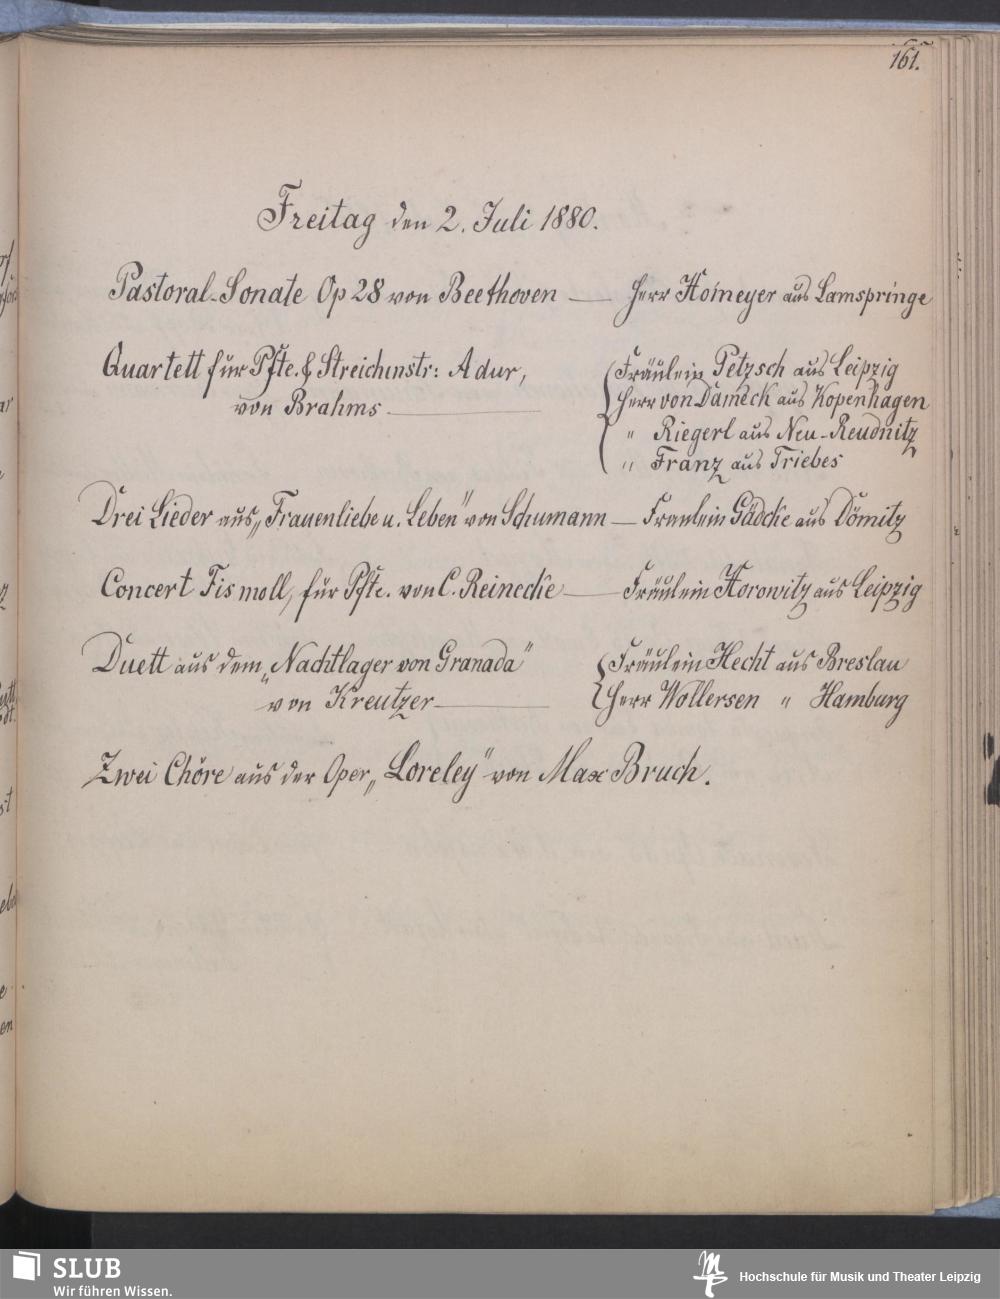 161.
Freitag den 2. Juli 1880.
Pastoral-Sonate Op 28 von Beethoven — Herr Homeyer aus Lamspringe
Quartett für Pfte. & Streichinstr: A dur,
von Brahms
Fräulein Petzsch aus Leipzig
Herr von Dameck aus Kopenhagen
" Riegerl aus Neu-Reudnitz
" Franz aus Triebes
Drei Lieder aus „Frauenliebe u. Leben" von Schumann — Fraulein Gädcke aus Dömitz
Concert Fis moll, für Pfte. von C. Reinecke — Fräulein Horowitz aus Leipzig
Duett aus dem „Nachtlager von Granada"
von Kreutzer
Fräulein Hecht aus Breslau
Herr Wollersen " Hamburg
Zwei Chöre aus der Oper „Loreley" von Max Bruch.
SLUB
Wir führen Wissen.
Hochschule für Musik und Theater Leipzig